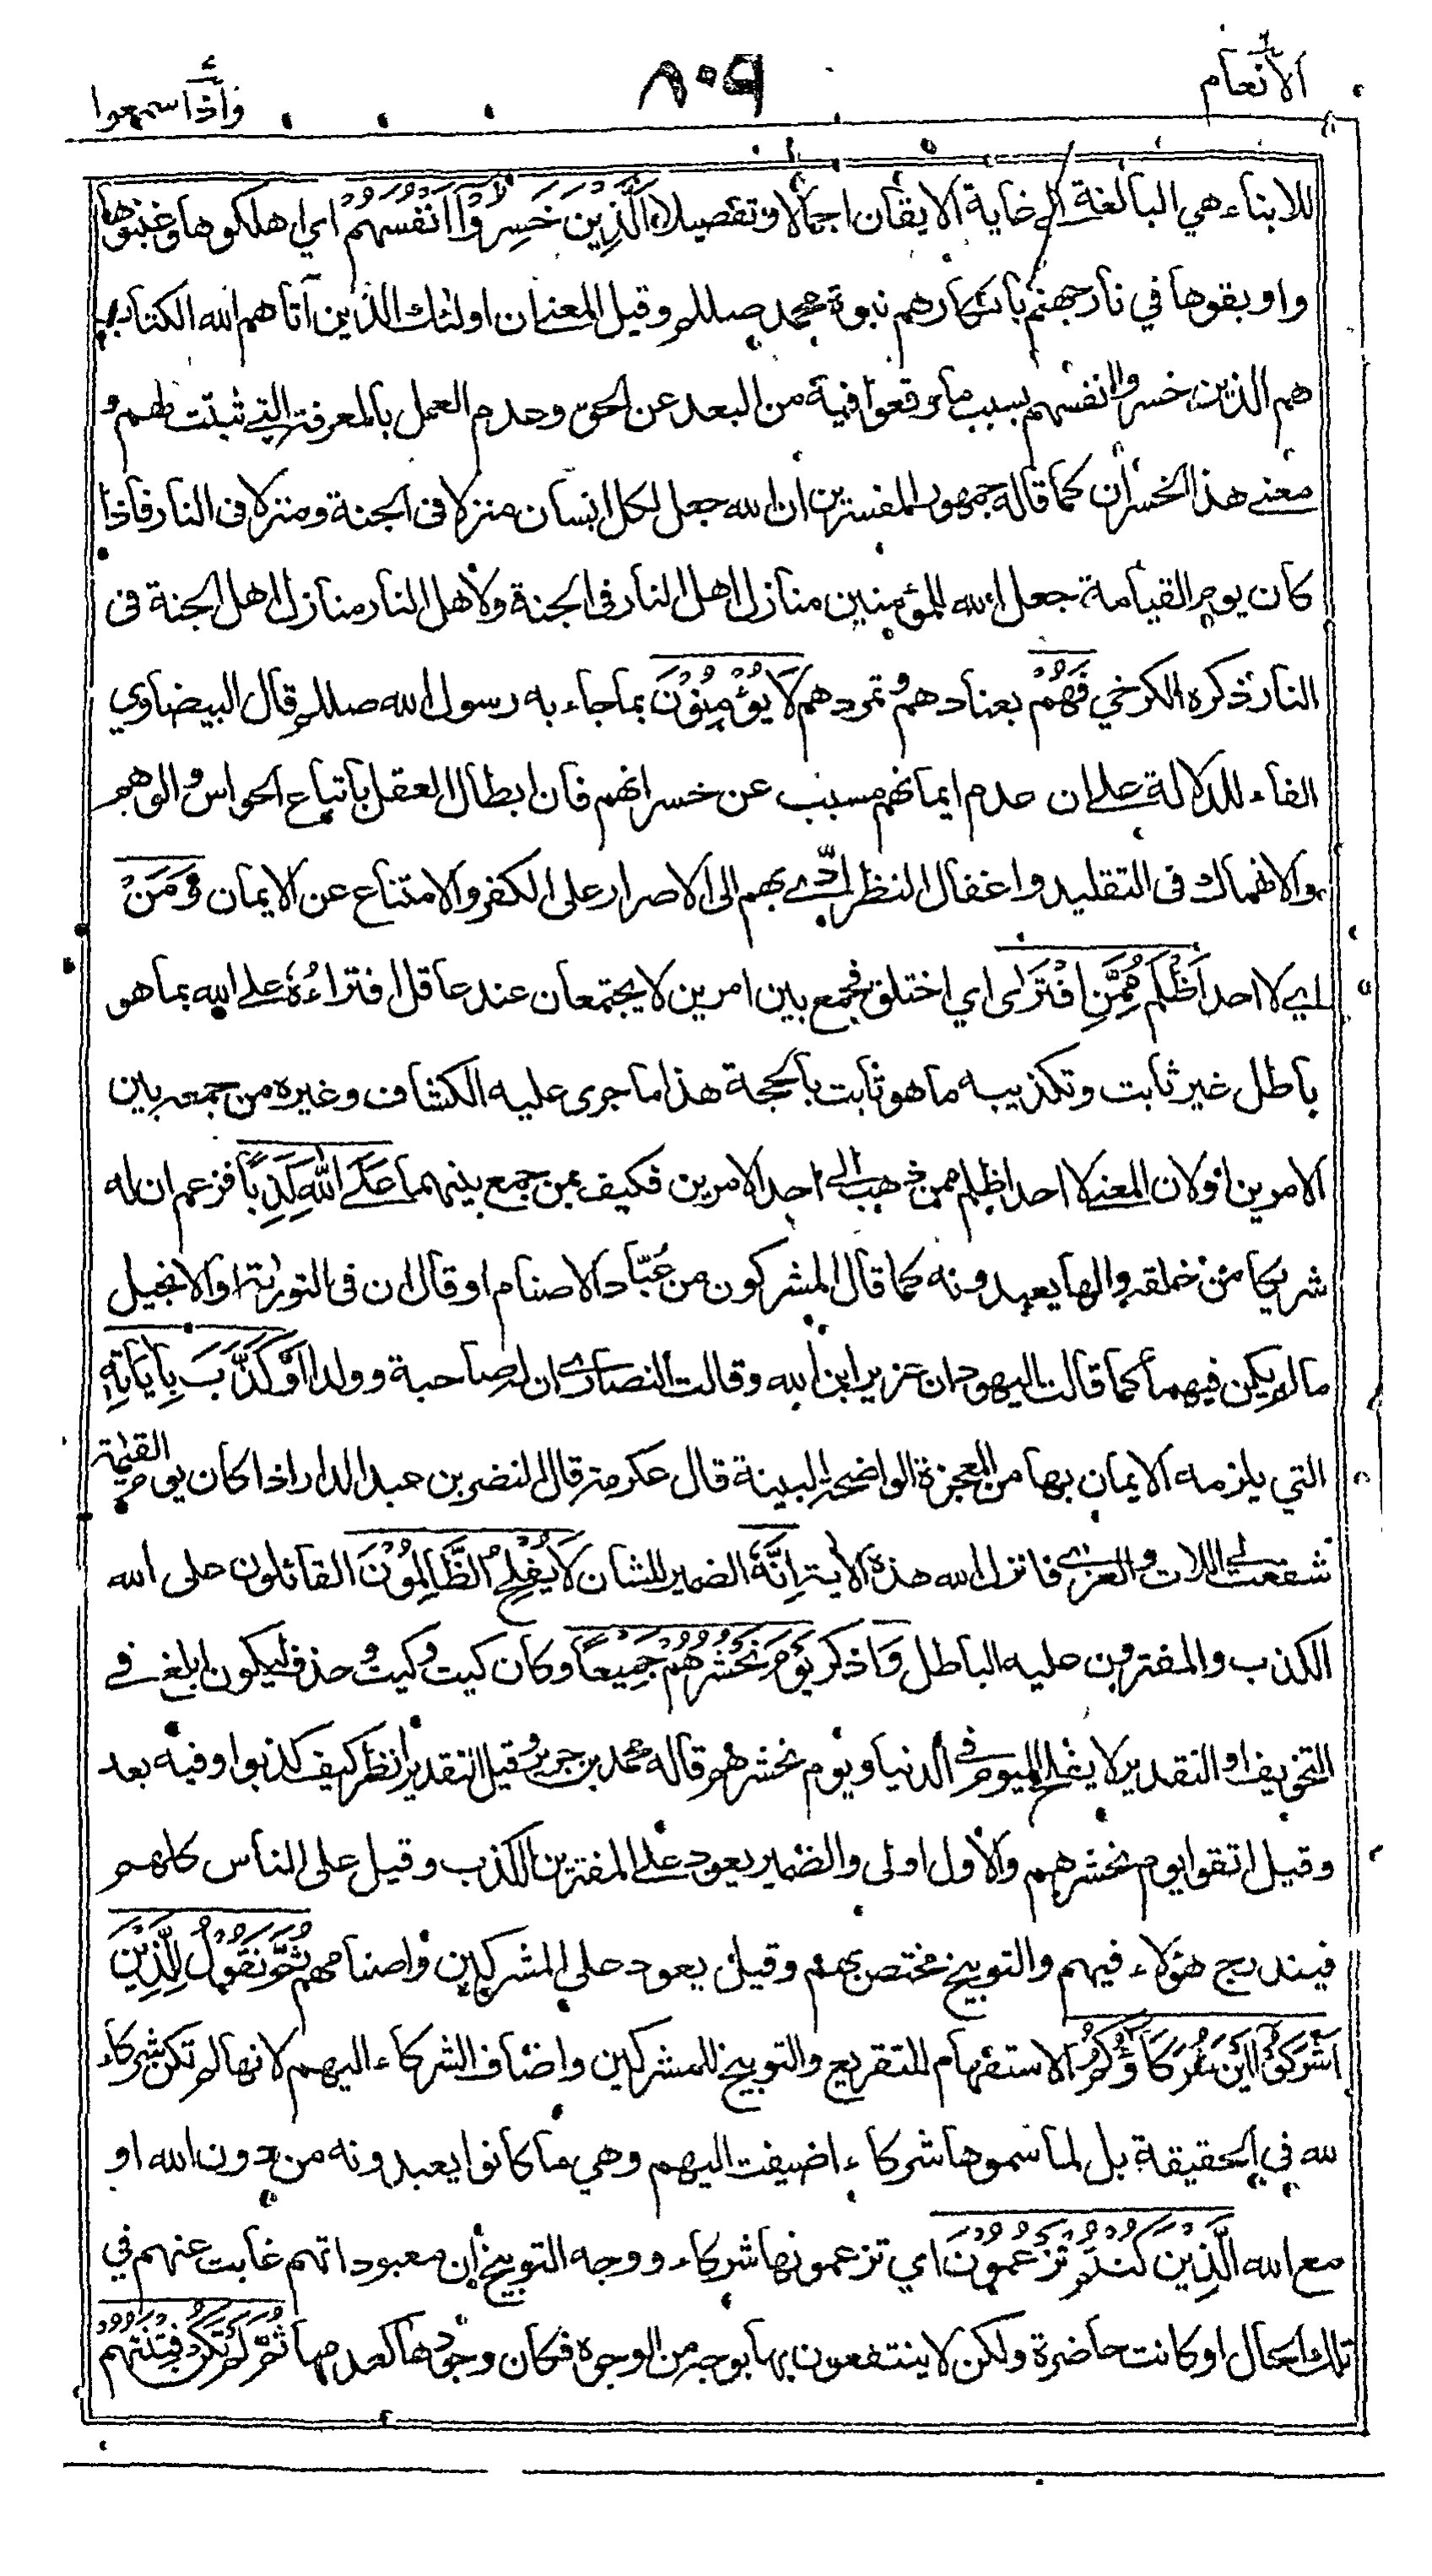 الانعام
٨٠٩
واذا سمعوا
للابناء هي البالغة الى غاية الايقان اجمالا وتفصيلا اَلَّذِيْنَ خَسِرُوْا اَنْفُسَهُمْ اي اهلكوها وغبنوها
واوبقوها في نار جهنم بانكارهم نبوة محمد صللم وقيل المعنى ان اولئك الذين آتاهم الله الكتاب
هم الذين خسروا انفسهم بسبب ما وقعوا فيه من البعد عن الحق وعدم العمل بالمعرفة التي ثبتت لهم و
معنى هذا الخسران كما قاله جمهور المفسرين ان الله جعل لكل انسان منزلا فى الجنة ومنزلا فى النار فاذا
كان يوم القيامة جعل الله للمؤمنين منازل اهل النار فى الجنة ولاهل النار منازل اهل الجنة فى
النار ذكره الكرخي فَهُمْ بعنادهم وتمردهم لَا يُؤْمِنُوْنَ بما جاء به رسول الله صللم قال البيضاوي
الفاء للدلالة على ان عدم ايمانهم مسبب عن خسرانهم فان ابطال العقل باتباع الحواس والوهم
والانهماك فى التقليد واغفال النظر ادّى بهم الى الاصرار على الكفر والامتناع عن الايمان وَمَنْ
اي لا احد اَظْلَمُ مِمَّنِ افْتَرٰى اي اختلق فجمع بين امرين لا يجتمعان عند عاقل افتراءُهُ على الله بما هو
باطل غير ثابت وتكذيبه ما هو ثابت بالحجة هذا ما جرى عليه الكشاف وغيره من جمعه بين
الامرين اولان المعنى لا احد اظلم ممن ذهب الى احد الامرين فكيف بمن جمع بينهما عَلَى اللهِ كَذِبًا فزعم ان له
شريكا من خلقه والها يعبد دونه كما قال المشركون من عُبّاد الاصنام او قال ان فى التورىة او الانجيل
ما لم يكن فيهما كما قالت اليهود ان عزير ابن الله وقالت النصارى ان له صاحبة وولدا اَوْ كَذَّبَ بِاٰيَاتِهٖ
التي يلزمه الايمان بها من المعجزة الواضحة البينة قال عكرمة قال النضر بن عبد الدار اذا كان يوم القيٰمة
شفعت لي اللات والعزى فانزل الله هذه الاية اِنَّهٗ الضمير للشان لَا يُفْلِحُ الظَّالِمُوْنَ القائلون على الله
الكذب والمفترون عليه الباطل وَ اذكر يَوْمَ نَحْشُرُهُمْ جَمِيْعًا وكان كيت وكيت وحذف ليكون ابلغ في
التخويف او التقدير لا يفلح اليوم فى الدنيا ويوم نحشرهم قاله محمد بن جرير وقيل التقدير انظر كيف كذبوا وفيه بعد
وقيل اتقوا يوم نحشرهم والاول اولى والضمير يعود على المفترين الكذب وقيل على الناس كلهم
فيندرج هؤلاء فيهم والتوبيخ مختص بهم وقيل يعود على المشركين واصنامهم ثُمَّ نَقُوْلُ لِلَّذِيْنَ
اَشْرَكُوْٓا اَيْنَ شُرَكَآؤُكُمُ الاستفهام للتقريع والتوبيخ للمشركين واضاف الشركاء اليهم لانها لم تكن شركاء
لله في الحقيقة بل لما سموها شركاء اضيفت اليهم وهي ما كانوا يعبدونه من دون الله او
مع الله الَّذِيْنَ كُنْتُمْ تَزْعُمُوْنَ اي تزعمونها شركاء ووجه التوبيخ ان معبوداتهم غابت عنهم في
تلك الحال او كانت حاضرة ولكن لا ينتفعون بها بوجه من الوجوه فكان وجودها كعدمها ثُمَّ لَمْ تَكُنْ فِتْنَتُهُمْ